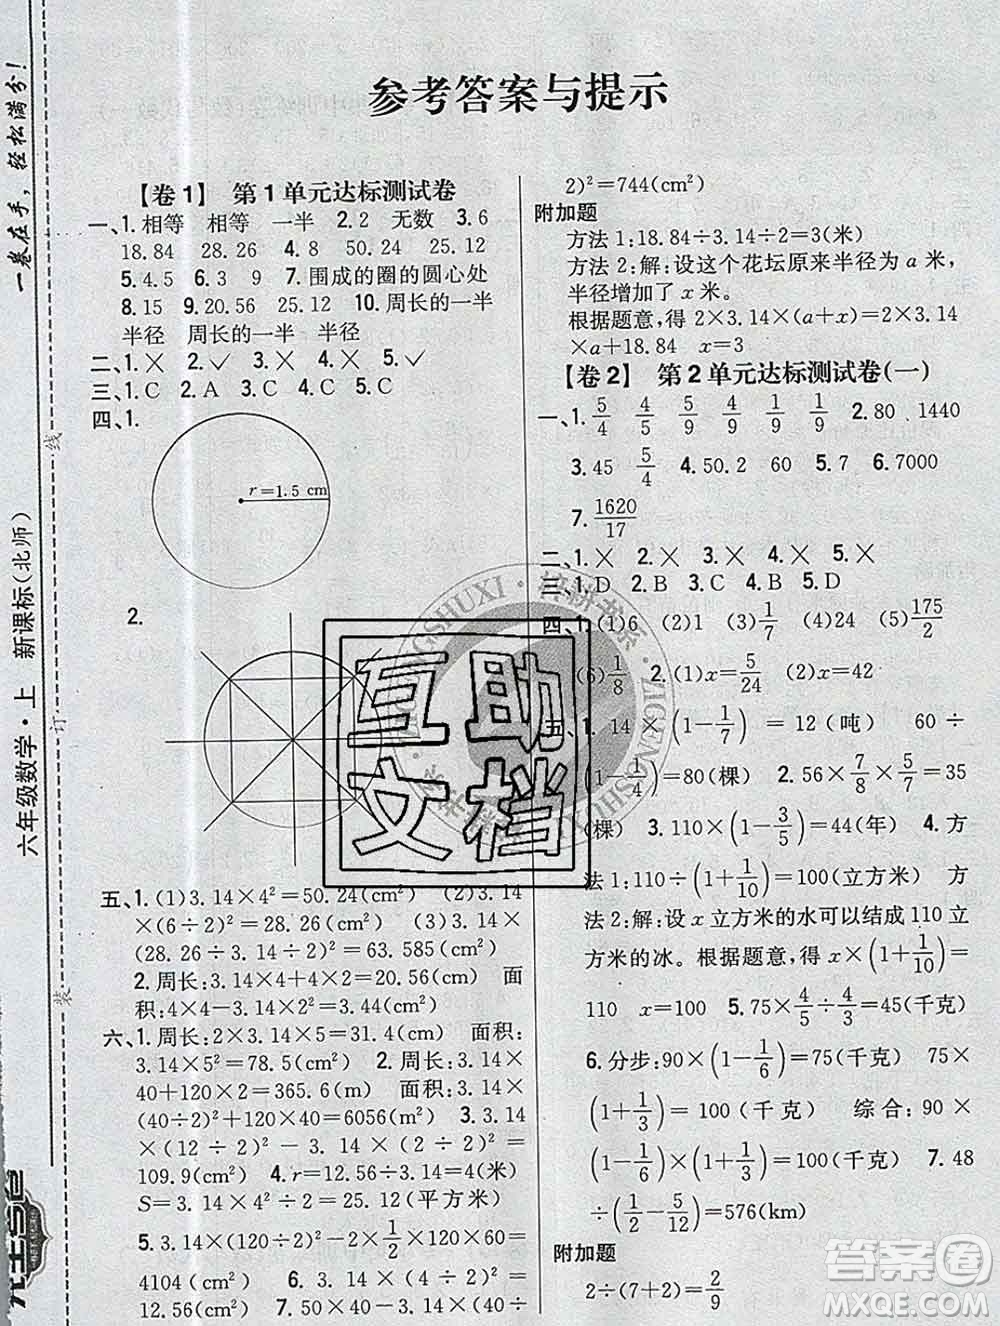 一卷在手，轻松满分！
六年级数学·上 新课标(北师)
装 订 线
参考答案与提示
【卷1】 第1单元达标测试卷
一、1.相等 相等 一半 2.2 无数 3.6
18.84 28.26 4.8 50.24 25.12
5.4.5 6.9 7.围成的圈的圆心处
8.15 9.20.56 25.12 10.周长的一半
半径 周长的一半 半径
二、1.× 2.✓ 3.× 4.× 5.✓
三、1.C 2.A 3.C 4.B 5.C
四、1.
r=1.5 cm
2.
五、1.(1)3.14×4²=50.24(cm²) (2)3.14
×(6÷2)²=28.26(cm²) (3)3.14×
(28.26÷3.14÷2)²=63.585(cm²)
2.周长:3.14×4+4×2=20.56(cm) 面
积:4×4-3.14×(4÷2)²=3.44(cm²)
六、1.周长:2×3.14×5=31.4(cm) 面积:
3.14×5²=78.5(cm²) 2.周长:3.14×
40+120×2=365.6(m) 面积:3.14×
(40÷2)²+120×40=6056(m²) 3.3.14
×(12÷2)²-3.14×(2÷2)²=
109.9(cm²) 4.r=12.56÷3.14=4(米)
S=3.14×(4÷2)²=12.56(平方米)
5.3.14×(120÷2)²-2×1/2×120×60=
4104(cm²) 6.3.14×(4÷2)²=
12.56(cm²) 3.14×(30÷
2)²=744(cm²)
附加题
方法1:18.84÷3.14÷2=3(米)
方法2:解:设这个花坛原来半径为a米,
半径增加了x米。
根据题意,得2×3.14×(a+x)=2×3.14
×a+18.84 x=3
【卷2】 第2单元达标测试卷(一)
一、1.5/4 4/5 5/9 4/9 1/9 1/9 2.80 1440
3.45 5/4 4.50.2 60 5.7 6.7000
7.1620/17
二、1.× 2.× 3.× 4.✓ 5.×
三、1.D 2.B 3.B 4.D 5.C
四、1.(1)6 (2)1 (3)1/7 (4)24 (5)175/2
(6)1/8 2.(1)x=5/24 (2)x=42
五、1.14×(1-1/7)=12(吨) 60÷
(1-1/4)=80(棵) 2.56×7/8×5/7=35
(棵) 3.110×(1-3/5)=44(年) 4.方
法1:110÷(1+1/10)=100(立方米) 方
法2:解:设x立方米的水可以结成110立
方米的冰。根据题意,得x×(1+1/10)=
110 x=100 5.75×4/5÷4/3=45(千克)
6.分步:90×(1-1/6)=75(千克) 75×
(1+1/3)=100(千克) 综合:90×
(1-1/6)×(1+1/3)=100(千克) 7.48
÷(1/2-5/12)=576(km)
附加题
2÷(7+2)=2/9
互助
文档
答案圈
MXQE.COM